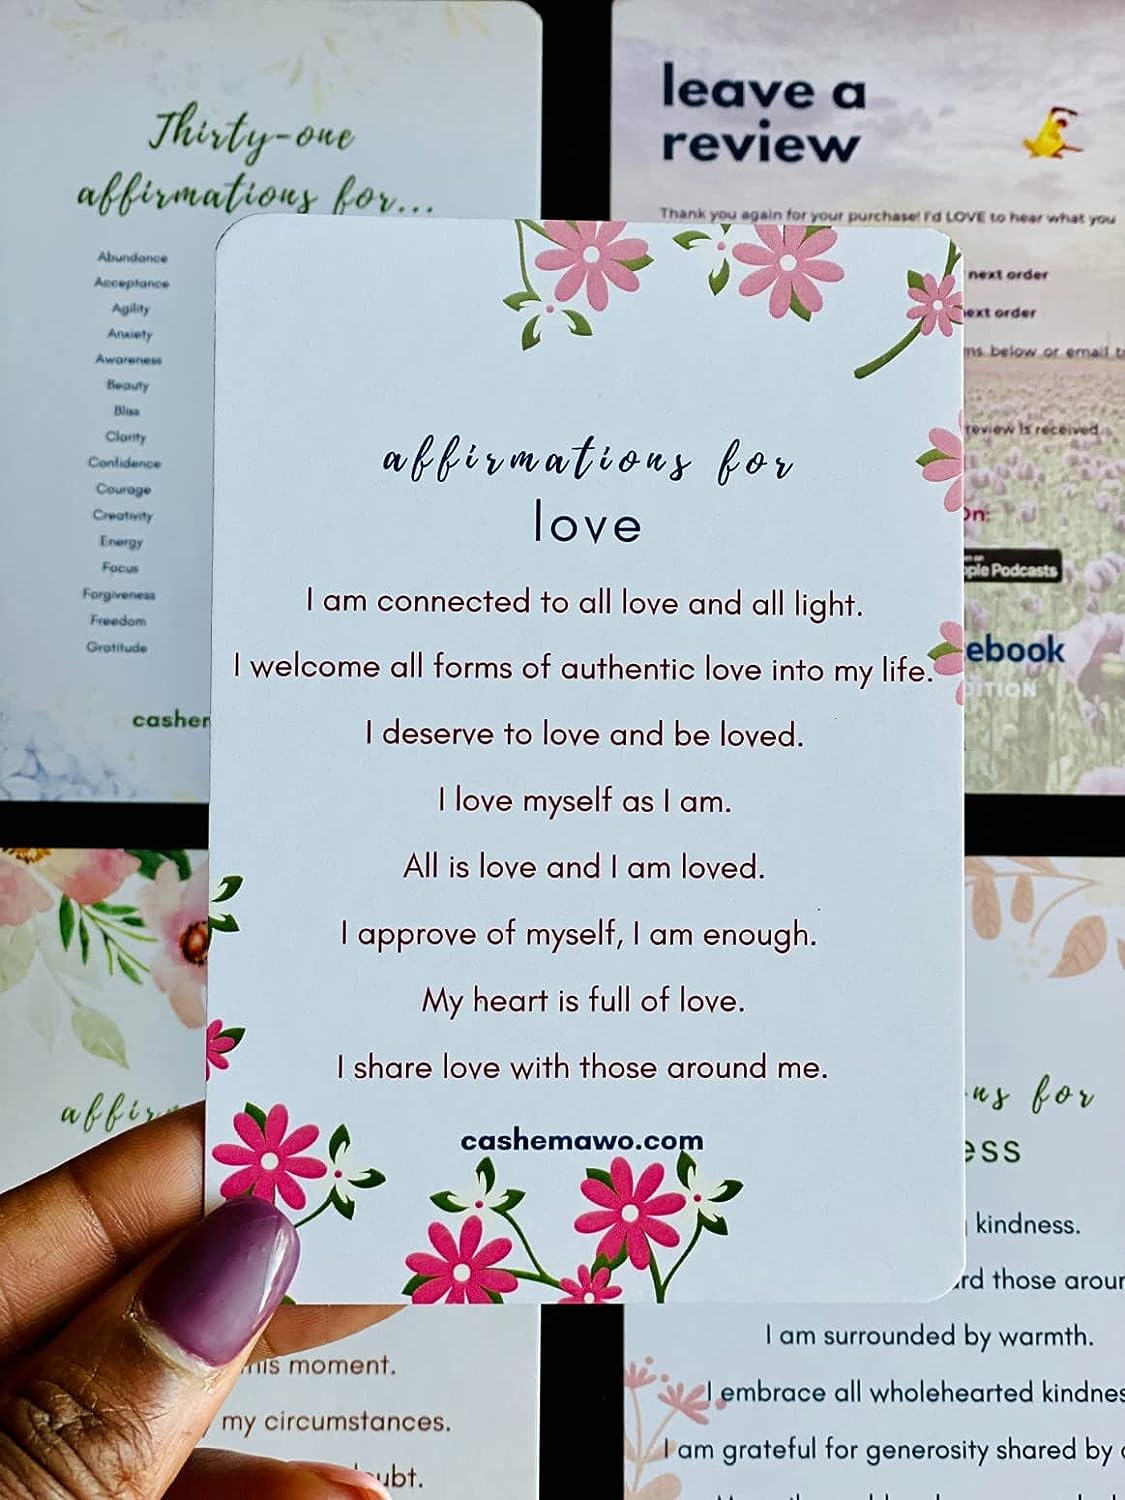 Thirty-one
affirmations for...
Abundance
Acceptance
Agility
Anxiety
Awareness
Beauty
Bliss
Clarity
Confidence
Courage
Creativity
Energy
Focus
Forgiveness
Freedom
Gratitude
leave a
review
Thank you again for your purchase! I'd LOVE to hear what you
next order
next order
below or email
review is received
On:
Podcasts
affirmations for
love
I am connected to all love and all light.
I welcome all forms of authentic love into my life.
I deserve to love and be loved.
I love myself as I am.
All is love and I am loved.
I approve of myself, I am enough.
My heart is full of love.
I share love with those around me.
cashemawo.com
this moment.
my circumstances.
for
kindness.
those
I am surrounded by warmth.
I embrace all wholehearted
I am grateful for generosity shared by